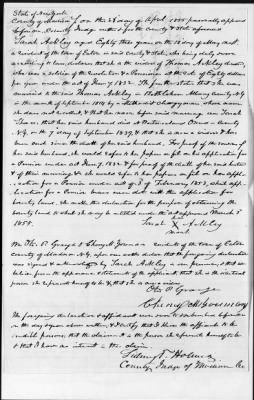 State of New York
County of Madison } On the 28 day of April 1855 personally appeared
before me County Judge within & for the county & State aforesaid
Sarah A McCoy aged Eighty three years on the 18 day of May next,
a resident of the town of Eaton in said county & State, who being duly sworn
according to law, declares that she is the widow of Thomas McCoy deceased,
who was a soldier of the revolution & a Pensioner at the rate of Eighty dollars
per year under the act of June 7, 1832. She further states that she was
married to the said Thomas McCoy in Bethlehem Albany County N.Y.
in the month of September by a Methodist clergyman whose name
she does not recollect, & that her name before said marriage was Sarah
that her said husband died at County
N.Y. on the 7 day of September 1839, & that she is now a widow & has
been such since the death of her said husband. For proof of the service of
her said husband, she would refer to his papers on file on his application
for a Pension under act June 7, 1832 & for proof of the death of her said husband
& of their marriage, & she would refer to her papers on file on her application
for a Pension under act of 3 of February 1853, which application
for a Pension
bounty land, she makes this declaration for the purpose of obtaining the
bounty land to which she may be entitled under the act approved March 3
1855.
Sarah X McCoy
her mark
We P. Grange & Cheny residents of the town of Eaton
County of Madison N.Y. upon our oaths declare that the foregoing declaration
was signed & acknowledged by Sarah McCoy in our presence, & that we
believe from the appearance & statements of the applicant, that she is the identical
person she represents herself to be, & that she is now a widow.
P Grange
The foregoing declaration & affidavit were sworn to & subscribed before me
on the day & year above written; & I certify that I know the affiants to be
credible persons, that the claimant is the person she represents herself to be
& that I have no interest in the claim.
Sidney T. Holmes
County Judge of Madison Co